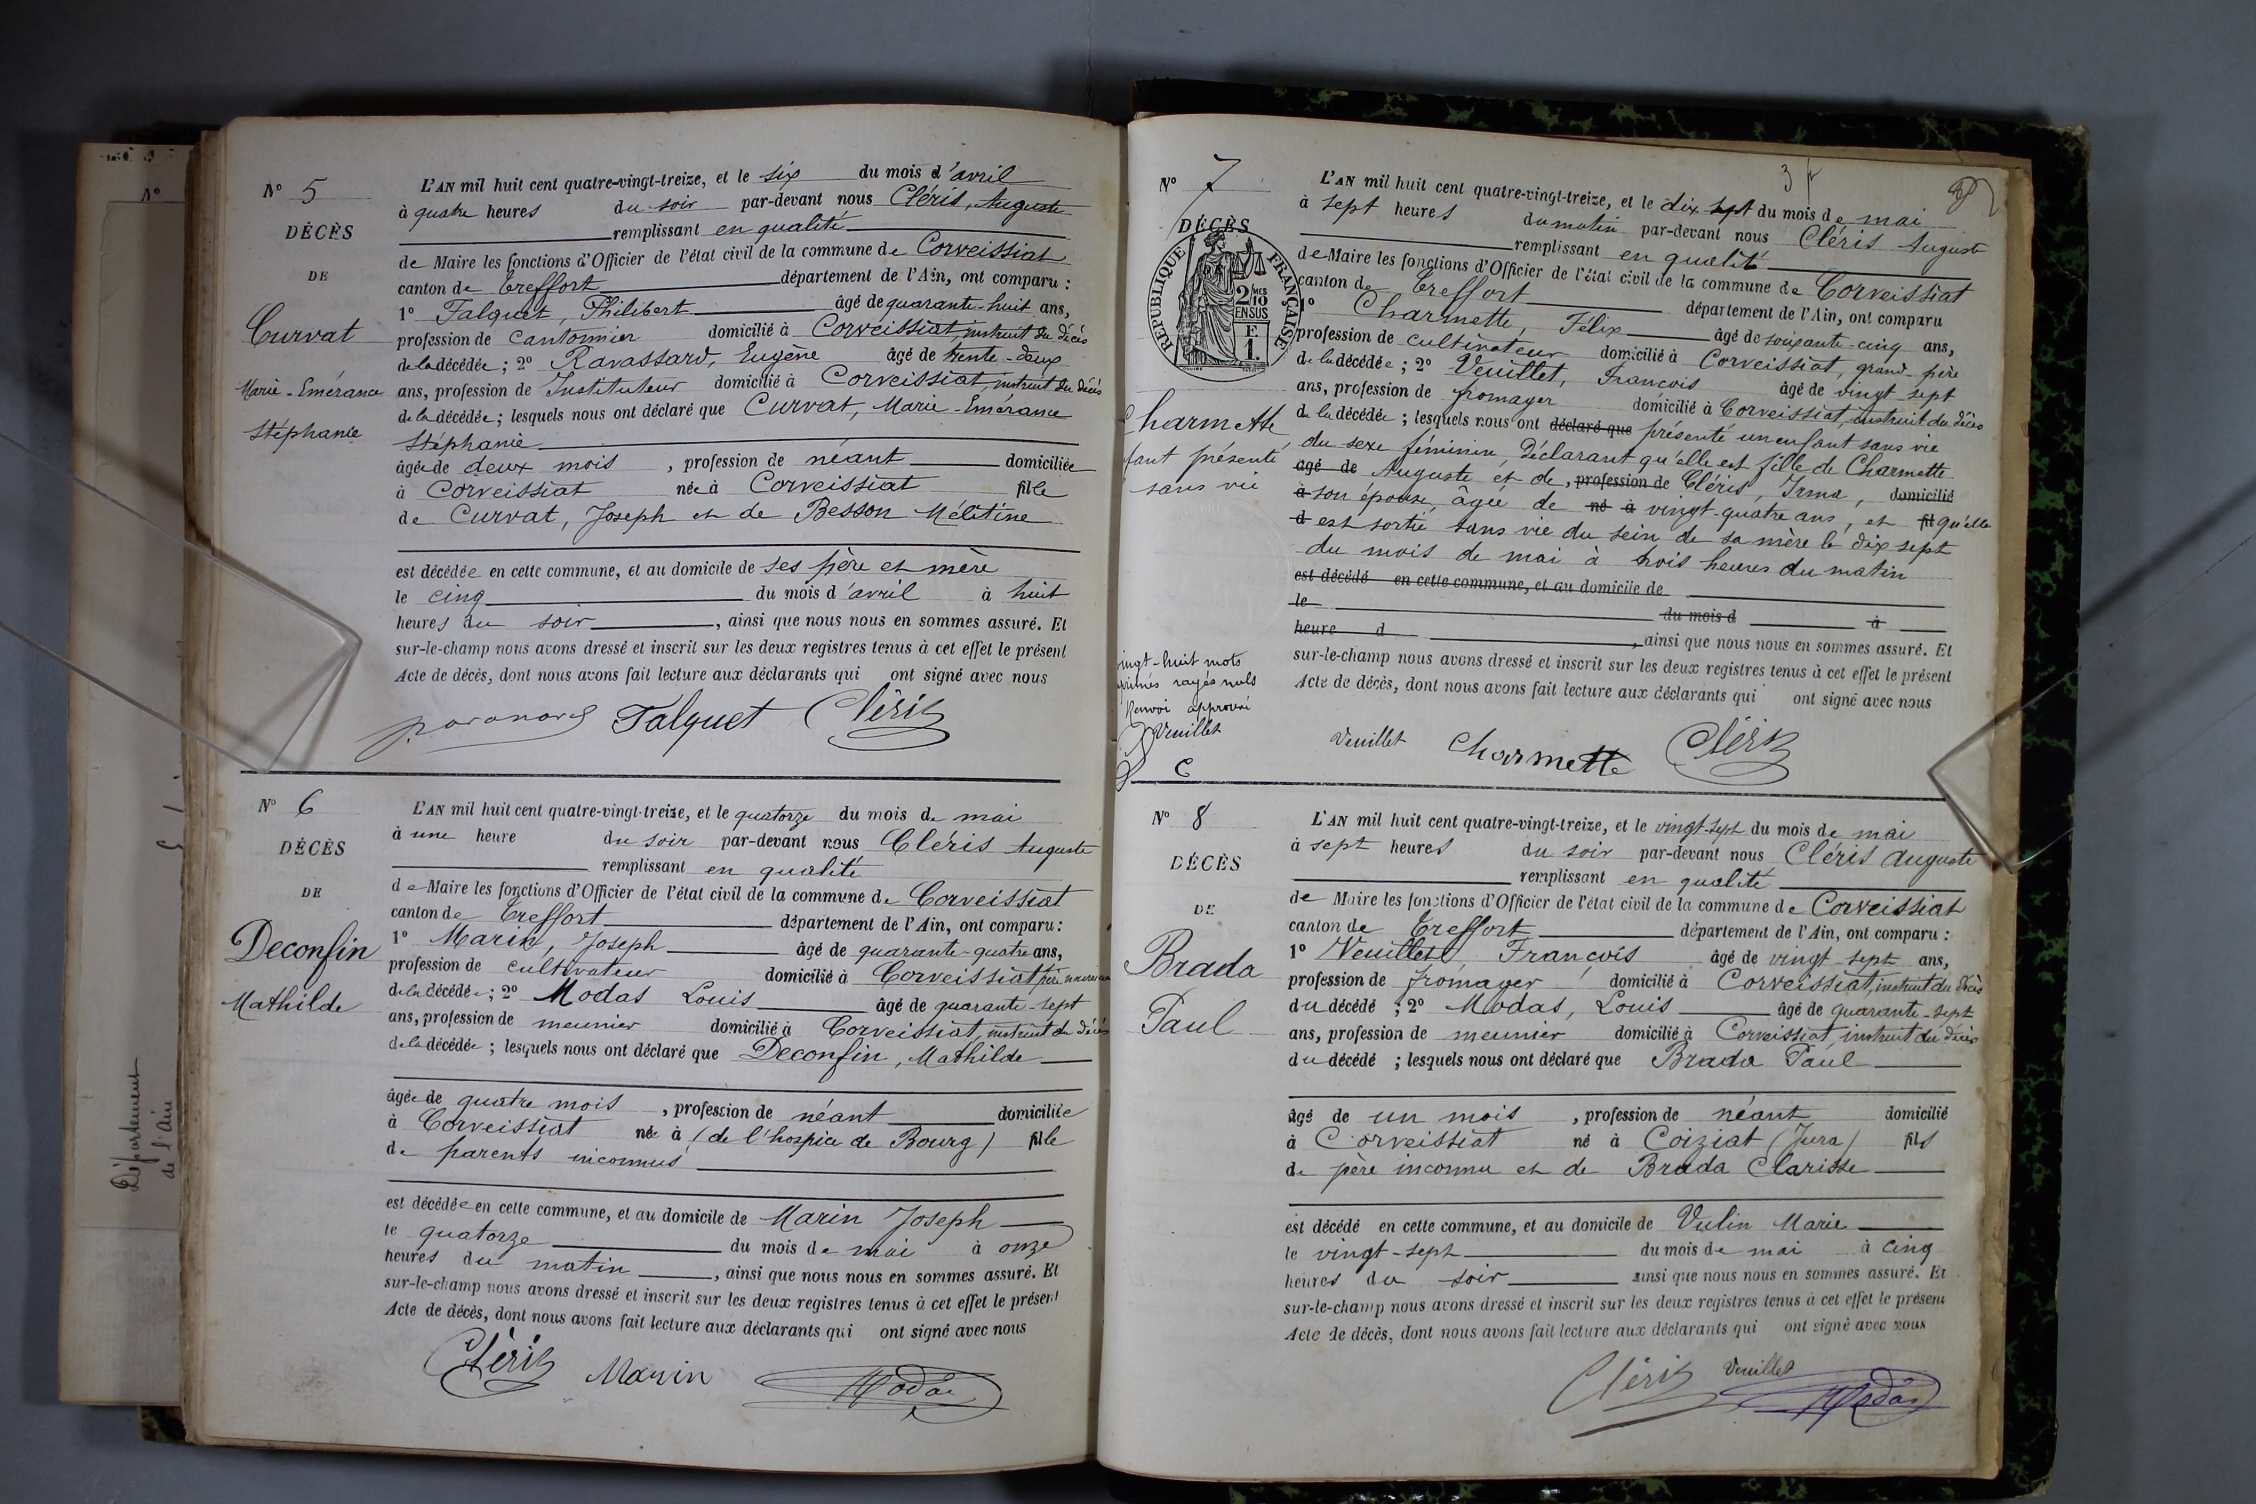 N° 5
DÉCÈS
DE
Curvat
Marie-Emérance
Stéphanie
L'AN mil huit cent quatre-vingt-treize, et le six du mois d'avril
à quatre heures du soir par-devant nous Cléris, Auguste
remplissant en qualité
de Maire les fonctions d'Officier de l'état civil de la commune de Corveissiat
canton de Treffort département de l'Ain, ont comparu :
1° Falquet, Philibert âgé de quarante-huit ans,
profession de cantonnier domicilié à Corveissiat, instruit du décès
de la décédée ; 2° Ravassard, Eugène âgé de trente-deux
ans, profession de Instituteur domicilié à Corveissiat, instruit du décès
de la décédée ; lesquels nous ont déclaré que Curvat, Marie-Emérance
Stéphanie
âgée de deux mois , profession de néant domiciliée
à Corveissiat née à Corveissiat fille
de Curvat, Joseph et de Besson Mélitine
est décédée en cette commune, et au domicile de ses père et mère
le cinq du mois d'avril à huit
heures du soir , ainsi que nous nous en sommes assuré. Et
sur-le-champ nous avons dressé et inscrit sur les deux registres tenus à cet effet le présent
Acte de décès, dont nous avons fait lecture aux déclarants qui ont signé avec nous
Falquet Cléris
N° 6
DÉCÈS
DE
Deconfin
Mathilde
L'AN mil huit cent quatre-vingt-treize, et le quatorze du mois de mai
à une heure du soir par-devant nous Cléris Auguste
remplissant en qualité
de Maire les fonctions d'Officier de l'état civil de la commune de Corveissiat
canton de Treffort département de l'Ain, ont comparu :
1° Marin, Joseph âgé de quarante-quatre ans,
profession de cultivateur domicilié à Corveissiat, père nourricier
de la décédée ; 2° Modas Louis âgé de quarante-sept
ans, profession de meunier domicilié à Corveissiat, instruit du décès
de la décédée ; lesquels nous ont déclaré que Deconfin, Mathilde
âgée de quatre mois , profession de néant domiciliée
à Corveissiat née à (de l'hospice de Bourg) fille
de parents inconnus
est décédée en cette commune, et au domicile de Marin Joseph
le quatorze du mois de mai à onze
heures du matin , ainsi que nous nous en sommes assuré. Et
sur-le-champ nous avons dressé et inscrit sur les deux registres tenus à cet effet le présent
Acte de décès, dont nous avons fait lecture aux déclarants qui ont signé avec nous
Cléris Marin Modas
Département
de l'Ain
N°
N° 7
DÉCÈS
REPUBLIQUE FRANÇAISE
2 MES
10
EN SUS
F.
1.
Charmette
sans vie
fant présenté
L'AN mil huit cent quatre-vingt-treize, et le dix sept du mois de mai
à sept heures du matin par-devant nous Cléris Auguste
remplissant en qualité
de Maire les fonctions d'Officier de l'état civil de la commune de Corveissiat
canton de Treffort département de l'Ain, ont comparu
1° Charmette, Félix âgé de soixante-cinq ans,
profession de cultivateur domicilié à Corveissiat, grand-père
de la décédée ; 2° Veuillet, François âgé de vingt sept
ans, profession de fromager domicilié à Corveissiat, instruit du décès
de la décédée ; lesquels nous ont déclaré que présenté un enfant sans vie
du sexe féminin, déclarant qu'elle est fille de Charmette
âgé de Auguste et de , profession de Cléris, Irma, domicilié
à son épouse, âgée de né à vingt-quatre ans, et fil qu'elle
d est sortie sans vie du sein de sa mère le dix sept
du mois de mai à trois heures du matin
est décédé en cette commune, et au domicile de
le du mois d à
heure d , ainsi que nous nous en sommes assuré. Et
sur-le-champ nous avons dressé et inscrit sur les deux registres tenus à cet effet le présent
Acte de décès, dont nous avons fait lecture aux déclarants qui ont signé avec nous
vingt-huit mots
imprimés rayés nuls
Renvoi approuvé
Veuillet
C
Veuillet Charmette Cléris
N° 8
DÉCÈS
DE
Brada
Paul
L'AN mil huit cent quatre-vingt-treize, et le vingt-sept du mois de mai
à sept heures du soir par-devant nous Cléris Auguste
remplissant en qualité
de Maire les fonctions d'Officier de l'état civil de la commune de Corveissiat
canton de Treffort département de l'Ain, ont comparu :
1° Veuillet François âgé de vingt-sept ans,
profession de fromager domicilié à Corveissiat, instruit du décès
du décédé ; 2° Modas, Louis âgé de quarante-sept
ans, profession de meunier domicilié à Corveissiat, instruit du décès
du décédé ; lesquels nous ont déclaré que Brada Paul
âgé de un mois , profession de néant domicilié
à Corveissiat né à Coiziat (Jura) fils
de père inconnu et de Brada Clarisse
est décédé en cette commune, et au domicile de Vulin Marie
le vingt-sept du mois de mai à cinq
heures du soir ainsi que nous nous en sommes assuré. Et
sur-le-champ nous avons dressé et inscrit sur les deux registres tenus à cet effet le présent
Acte de décès, dont nous avons fait lecture aux déclarants qui ont signé avec nous
Cléris Veuillet Modas